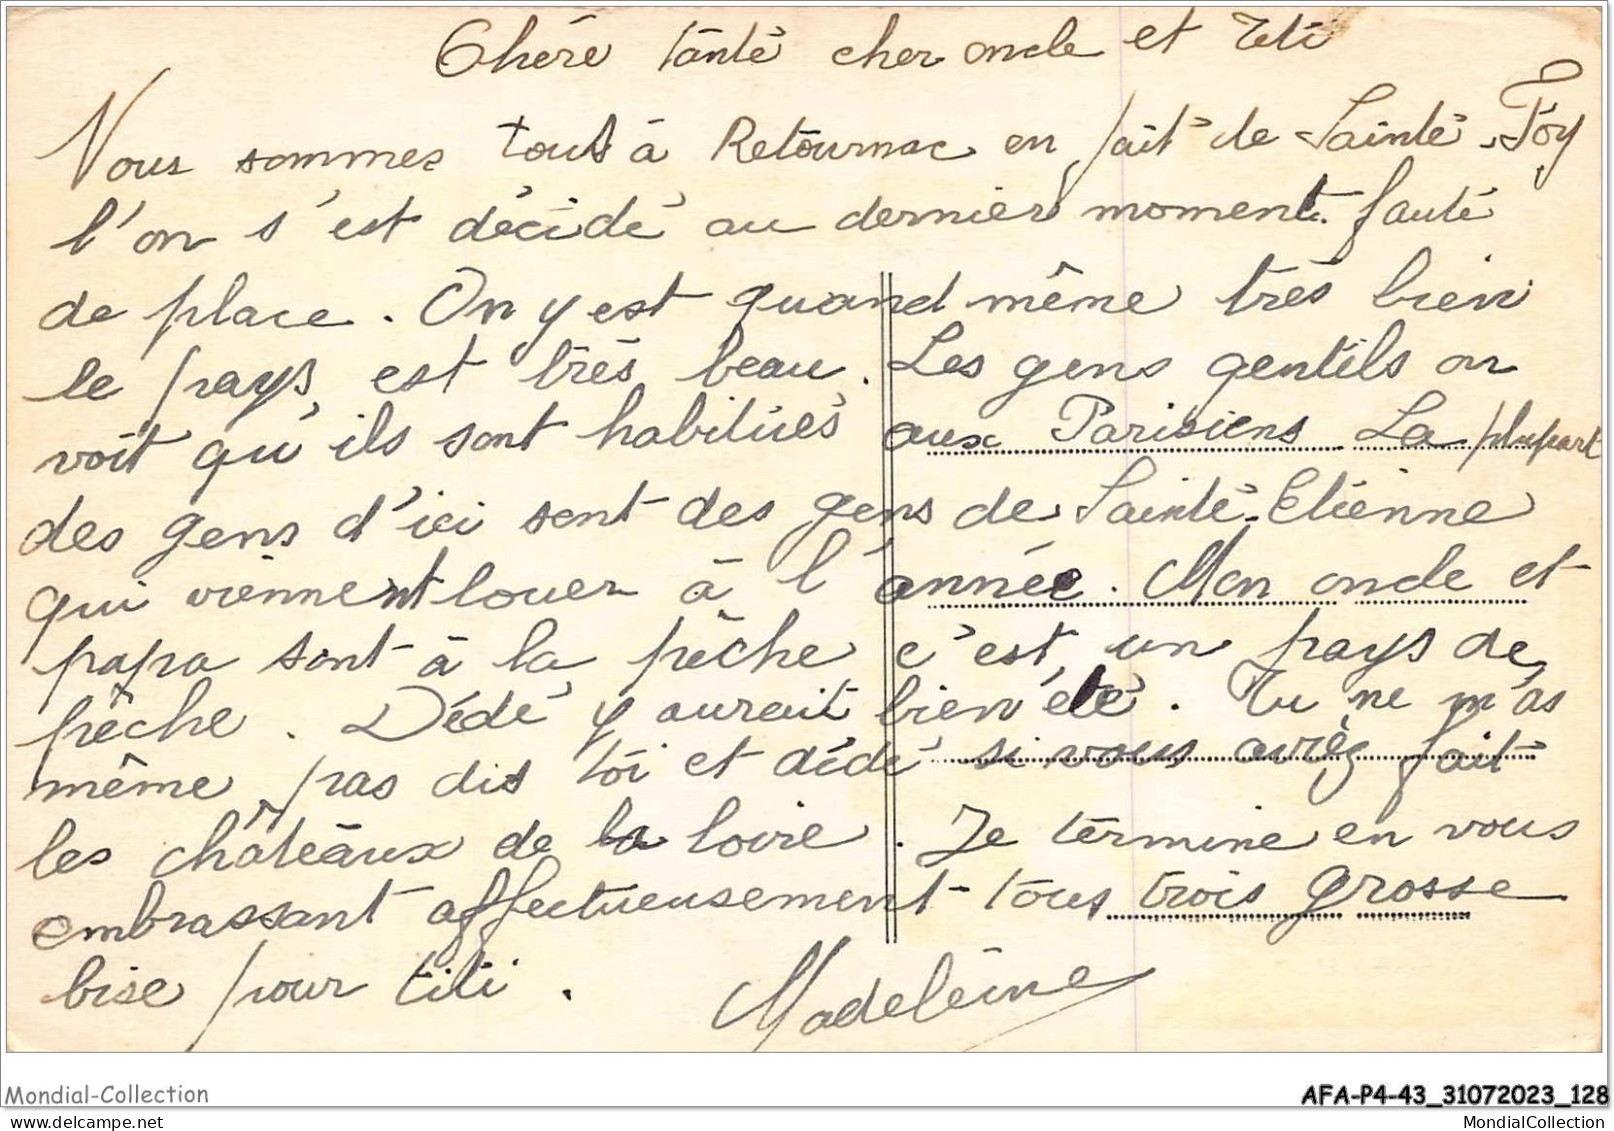 Chère tante cher oncle et Titi
Nous sommes tous à Retournac en fait de Sainte-Foy
l'on s'est décidé au dernier moment faute
de place. On y est quand même très bien
le pays est très beau. Les gens gentils on
voit qu'ils sont habitués aux Parisiens La plupart
des gens d'ici sont des gens de Sainte-Etienne
qui viennent louer à l'année. Mon oncle et
papa sont à la pêche c'est un pays de
pêche. Dédé y aurait bien été. Tu ne m'as
même pas dis toi et dédé si vous aviez fait
les châteaux de la loire. Je termine en vous
embrassant affectueusement tous trois grosse
bise pour titi.
Madeleine
Mondial-Collection
AFA-P4-43_31072023_128
delcampe.net
MondialCollection